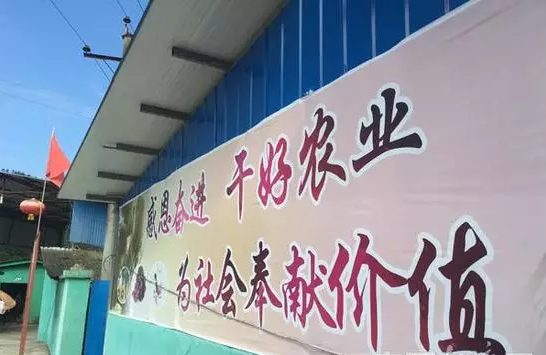 感恩奋进 干好农业
为社会奉献价值